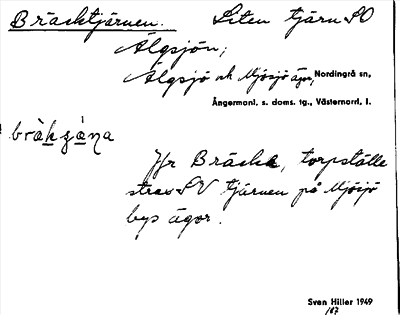 Bräcktjärnen. Liten tjärn SO
Älgsjön;
Älgsjö och Mjösjö ägor, Nordingrå sn,
Ångermanl. s. doms. tg., Västernorrl. l.
Jfr Bräcka, torpställe
strax SV tjärnen på Mjösjö
bys ägor.
Sven Hiller 1949
187